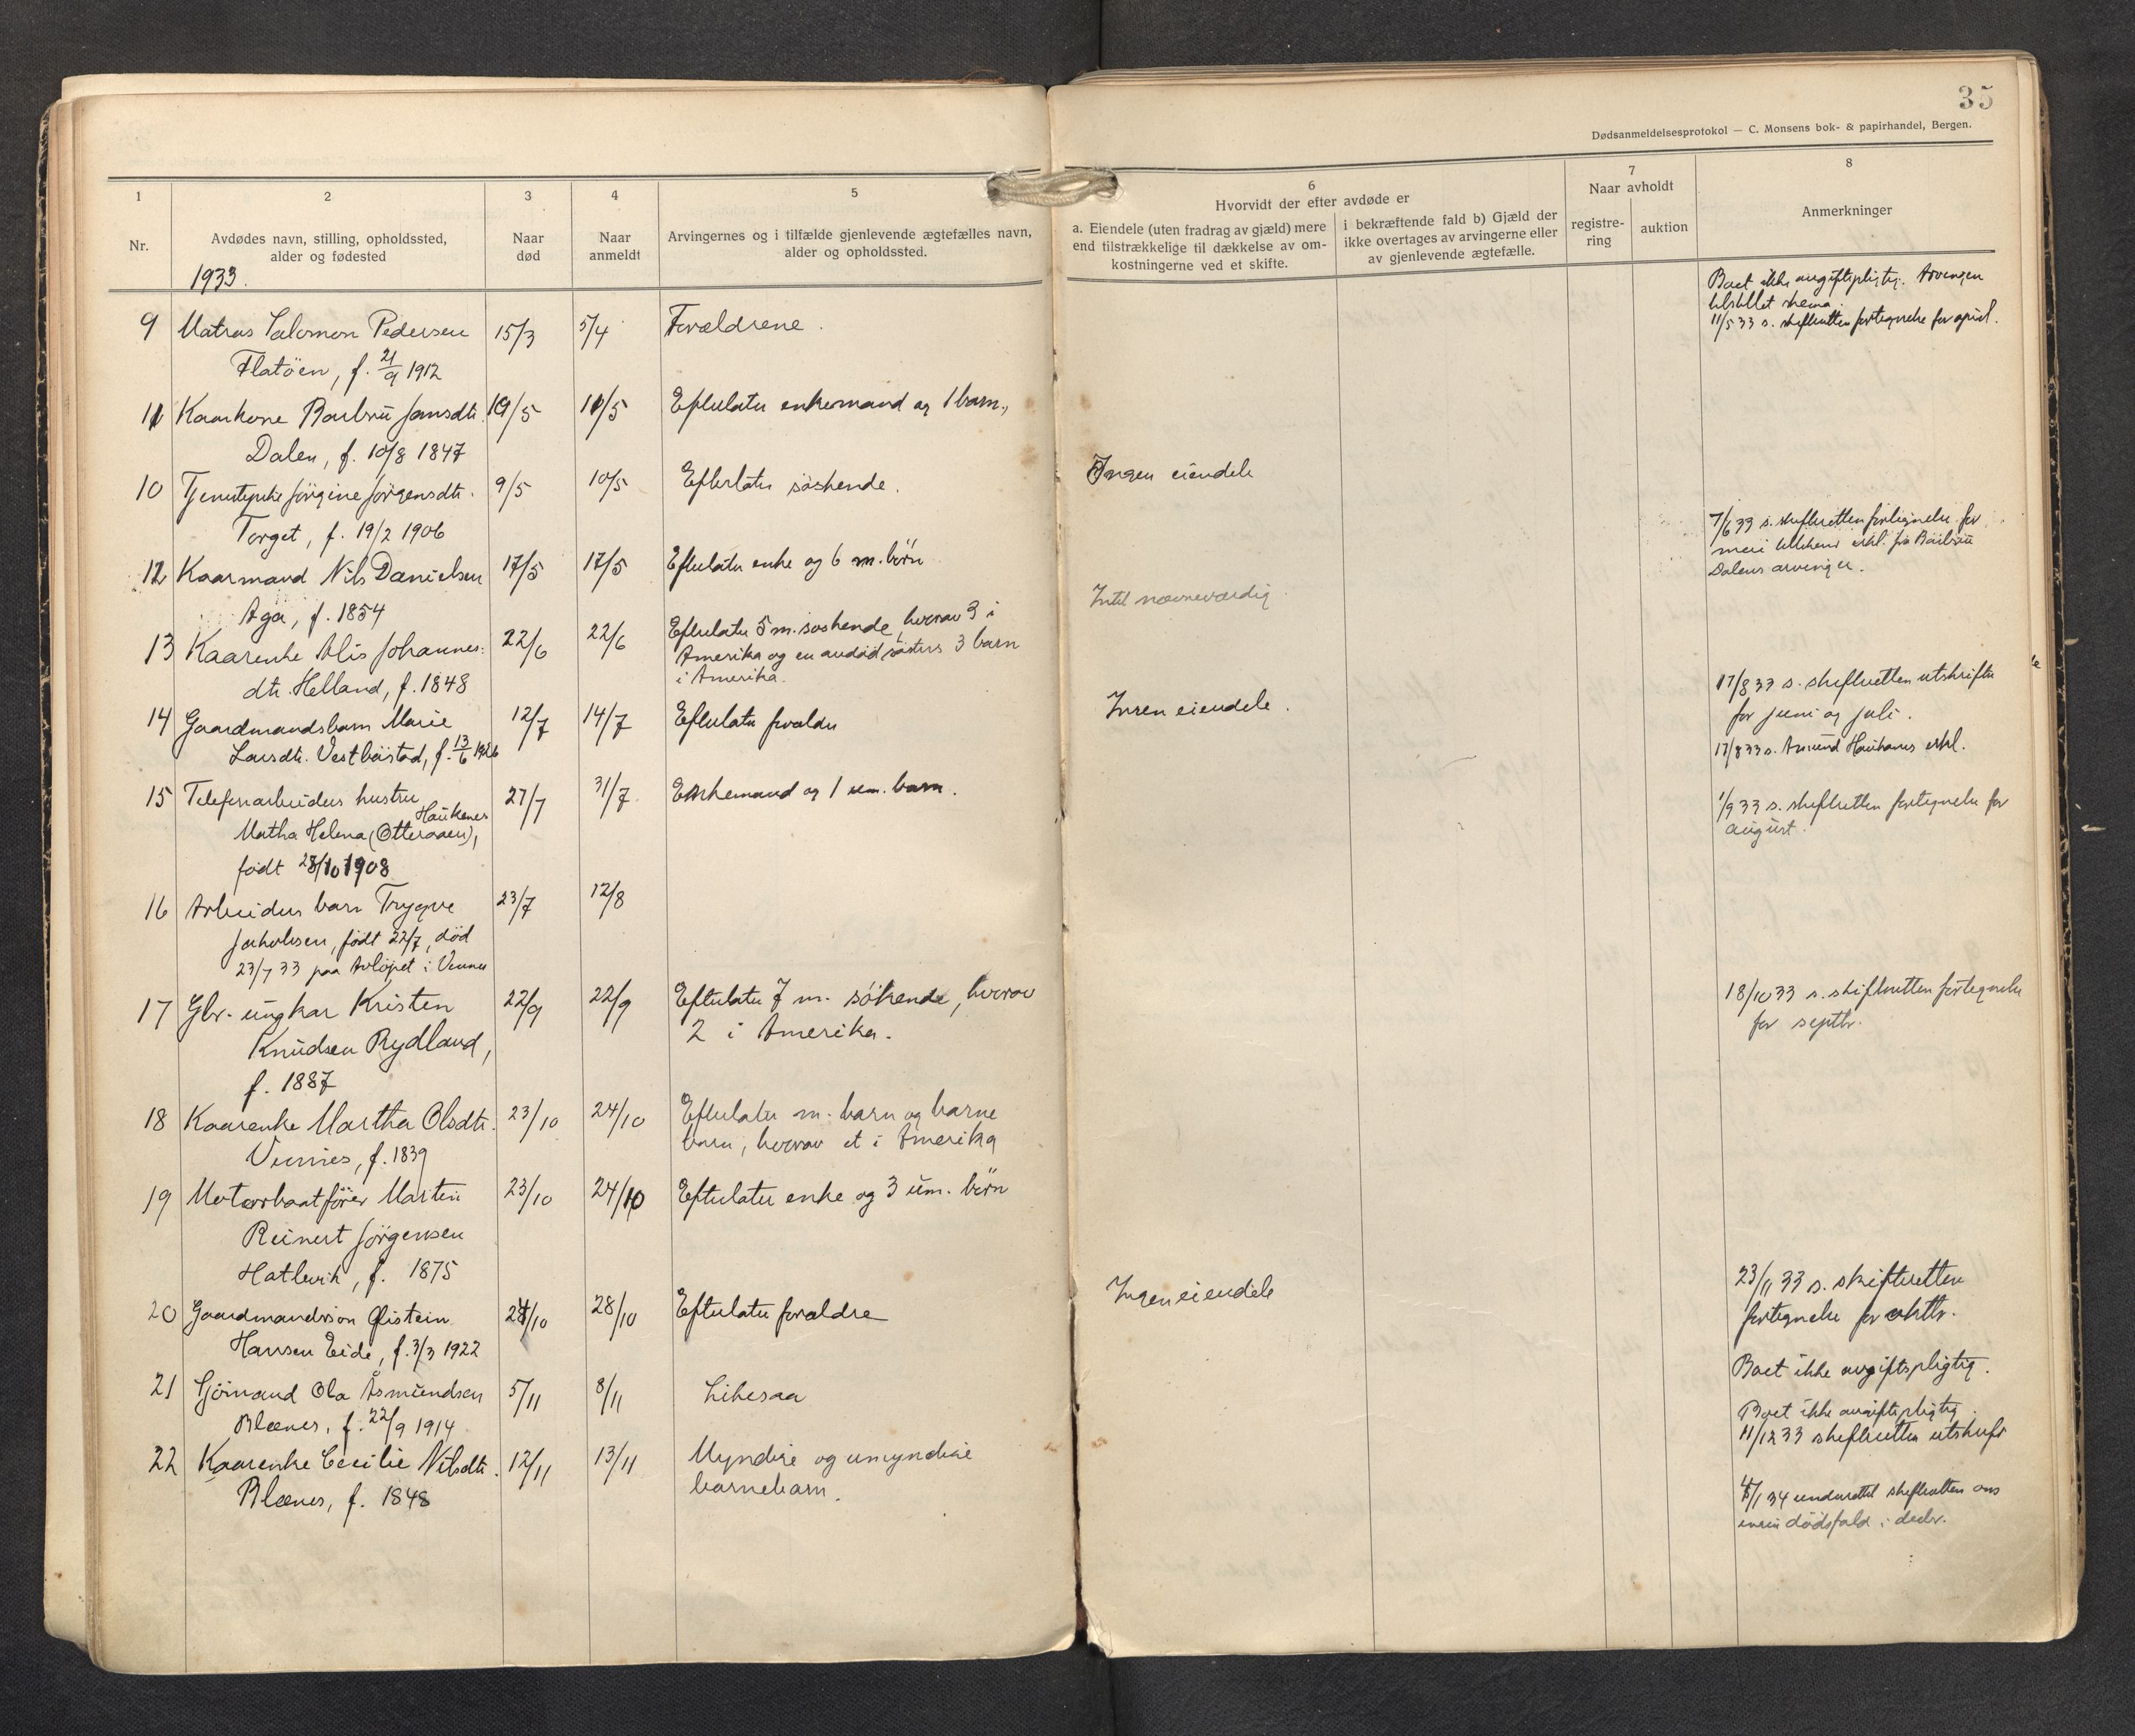 35
Dødsanmeldelsesprotokol — C. Monsens bok- & papirhandel, Bergen.
1
2
3
4
5
Nr.
Avdødes navn, stilling, opholdssted,
alder og fødested
Naar
død
Naar
anmeldt
Arvingernes og i tilfælde gjenlevende ægtefælles navn,
alder og opholdssted.
6
Hvorvidt der efter avdøde er
a. Eiendele (uten fradrag av gjæld) mere
end tilstrækkelige til dækkelse av om-
kostningerne ved et skifte.
i bekræftende fald b) Gjæld der
ikke overtages av arvingerne eller
av gjenlevende ægtefælle.
7
Naar avholdt
registre-
ring
auktion
8
Anmerkninger
1933.
9 Matros Salomon Pedersen 15/3 5/4 Forældrene.
Flatöen, f. 21/9 1912
11 Kaarkone Barbru Jansdtr. 10/5 11/5 Efterlater enkemand og 1 barn.
Dalen, f. 10/8 1847
10 Tjenestepike Jörgine Jörgensdtr. 9/5 10/5 Efterlater söskende.
Torget, f. 19/2 1906
12 Kaarmand Nils Danielsen 17/5 17/5 Efterlater enke og 6 m. börn
Aga, f. 1854
13 Kaarenke Alis Johannes- 22/6 22/6 Efterlater 5 m. söskende, hvorav 3 i
Amerika og en avdöd sösters 3 barn
i Amerika.
dtr. Helland, f. 1848
14 Gaardmandsbarn Marie 12/7 14/7 Efterlater forældre
Larsdtr. Vestböstad, f. 13/6 1926
15 Telefonarbeiders hustru 27/7 31/7 Enkemand og 1 um. barn.
Haukenes
Martha Helena (Otteraaen),
födt 28/10 1908
16 Arbeiders barn Trygve 23/7 12/8
Jakobsen, födt 22/7, död
23/7 33 paa
17 Gbr. ungkar Kristen 22/9 22/9 Efterlater 7 m. söskende, hvorav
2 i Amerika.
Knudsen Rydland,
f. 1887
18 Kaarenke Martha Olsdtr. 23/10 24/10 Efterlater m. barn og barne
barn, hvorav et i Amerika
f. 1839
19 Motorbaatförer Marten 23/10 24/10 Efterlater enke og 3 um. börn
Reinert Jörgensen
Hatlevik, f. 1875
20 Gaardmandssön Øistein 28/10 Efterlater forældre
Hansen Eide, f. 3/3 1922
21 Sjömand Ola Åsmundsen 5/11 8/11 Likesaa
Blænes, f. 22/9 1914
22 Kaarenke Cecilie Nilsdtr. 12/11 13/11 Myndige og umyndige
barnebarn.
Blænes, f. 1848
Ingen eiendele
Intet nævneværdig
Ingen eiendele.
Ingen eiendele
Boet ikke avgiftspligtig. Arvingen
tilstillet skema.
11/5 33 s. skifteretten fortegnelse for april.
7/6 33 s. skifteretten fortegnelse for
mai tillikemed erkl. fra Barbru
Dalens arvinger.
17/8 33 s. skifteretten utskrifter
for juni og juli.
17/8 33 s. Haukanes erkl.
1/9 33 s. skifteretten fortegnelse for
august.
18/10 33 s. skifteretten fortegnelse
for septbr.
23/11 33 s. skifteretten
fortegnelse for oktbr.
Boet ikke avgiftspligtig.
Boet ikke avgiftspligtig.
11/12 33 skifteretten utskrift
4/1 34 underrettet skifteretten om
ingen dödsfald i decbr.